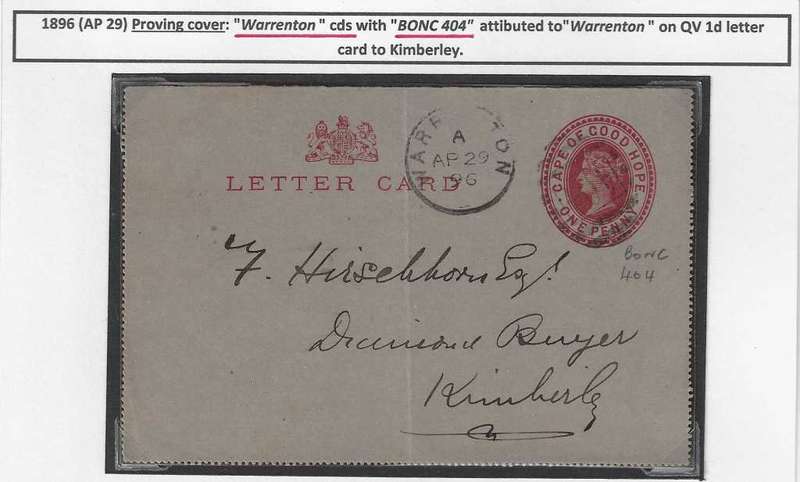 1896 (AP 29) Proving cover: "Warrenton" cds with "BONC 404" attibuted to"Warrenton" on QV 1d letter
card to Kimberley.
WARRENTON
A
AP 29
96
LETTER CARD
CAPE OF GOOD HOPE
ONE PENNY
BONC
404
F. Hirschhorn Esq!
Diamond Buyer
Kimberley